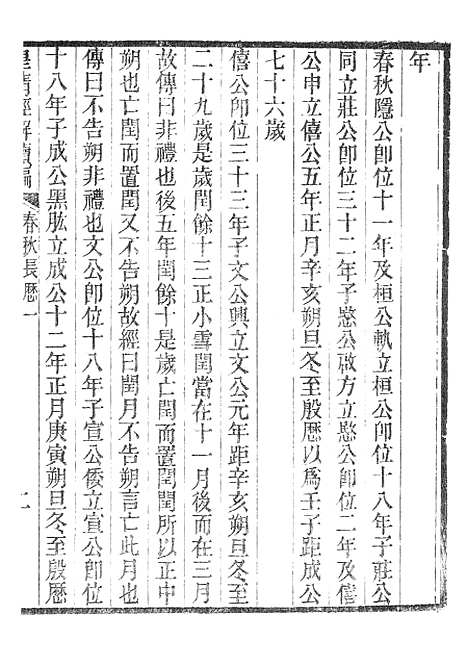 年
春秋隱公卽位十一年及桓公軌立桓公卽位十八年子莊公
同立莊公卽位三十二年子愍公啟方立愍公卽位二年及僖
公申立僖公五年正月辛亥朔旦冬至殷厯以爲壬子距成公
七十六歲
僖公卽位三十三年子文公興立文公元年距辛亥朔旦冬至
二十九歲是歲閏餘十三正小雪閏當在十一月後而在三月
故傳曰非禮也後五年閏餘十是歲亡閏而置閏閏所以正中
朔也亡閏而置閏又不告朔故經曰閏月不告朔言亡此月也
傳曰不告朔非禮也文公卽位十八年子宣公倭立宣公卽位
十八年子成公黑肱立成公十二年正月庚寅朔旦冬至殷厯
皇淸經解續編 春秋長厯一 二